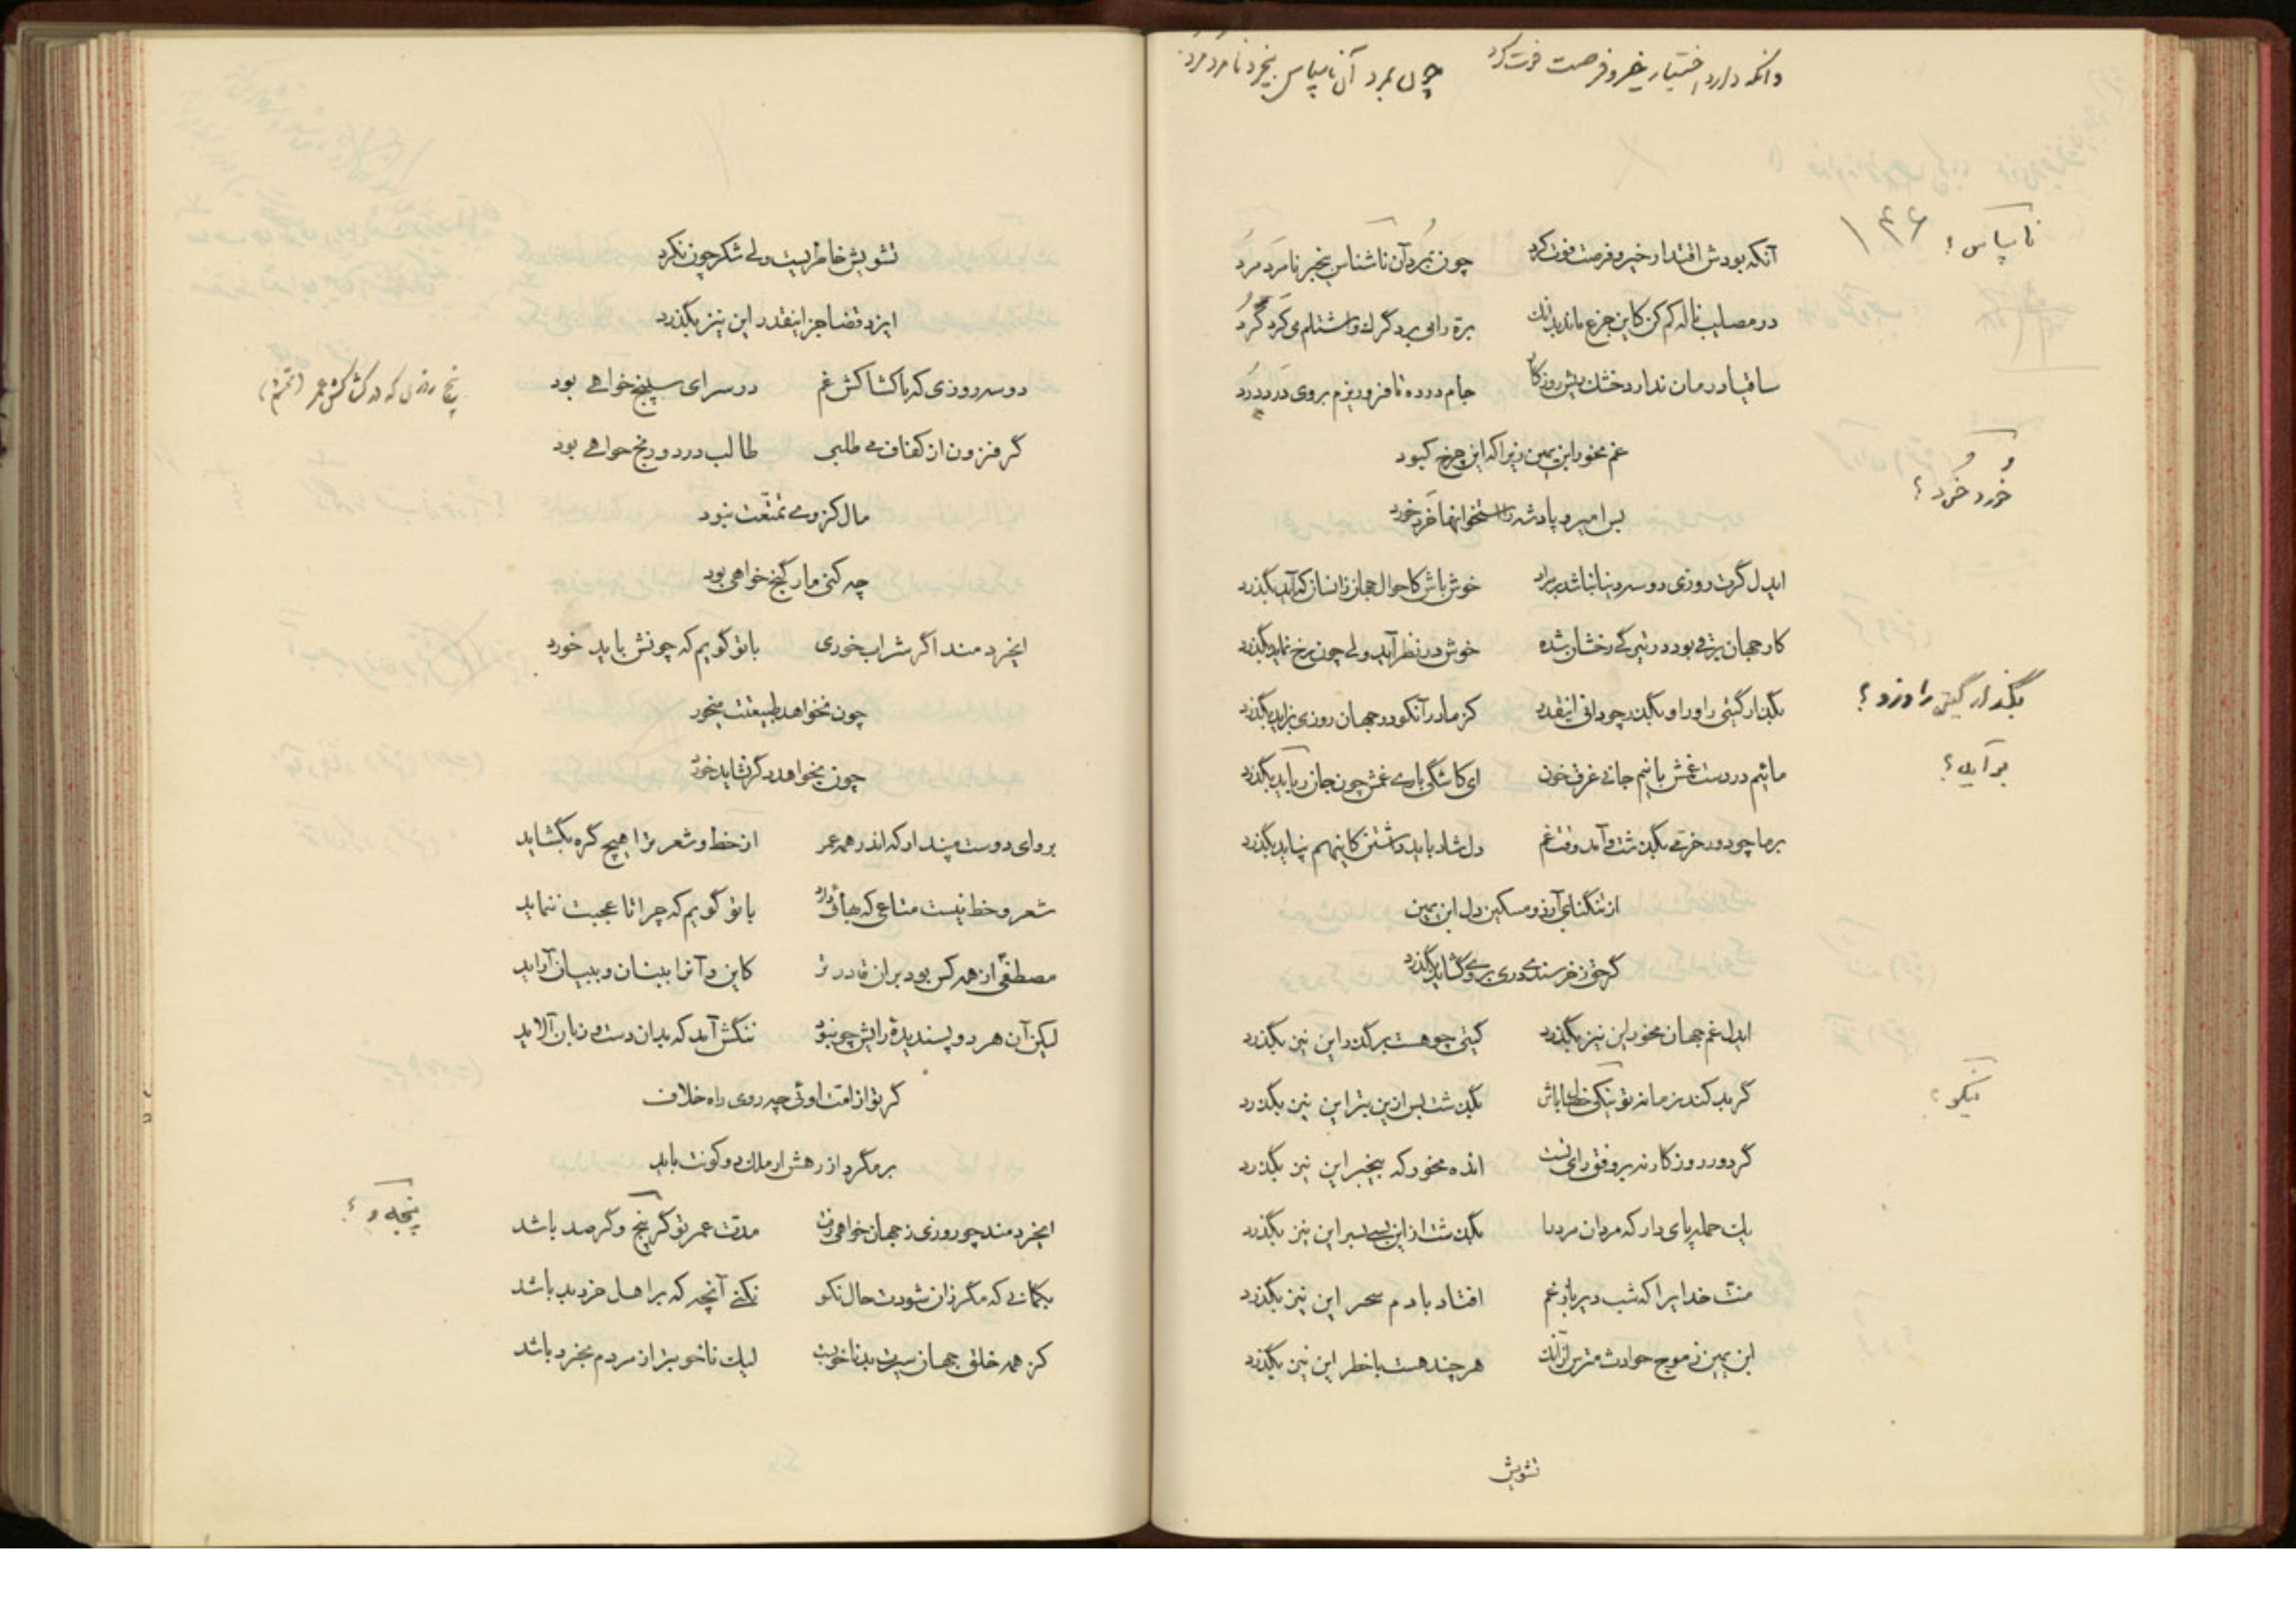 دانکه دارد اختیار خیر و فرصت فوت کرد چون بمرد آن ناسپاس بیخرد نامرد مرد
ناسپاس؟ ۱۴۶
آنکه بودش اقتدار خیر و فرصت فوت کرد چون بمرد آن ناشناس بیخبر نامرد مرد
در مصایب ناله کم کن کاین جزع ماند بدانک بره را می برد گرگ و اشتلم می کرد گرد
ساقیا درمان ندارد خشک ریش روزگار جام درده تا فرو ریزم بروی درد درد
غم مخور ابن یمین زیرا که این چرخ کبود
خرد خرد؟
بس امیر و پادشه را استخوانها خرد خورد
ایدل گرت روزی دو سه دنیا نباشد بر مراد خوش باش کاحوال جهان زانسان که آید بگذرد
کار جهان برقی بود در تیرگی رخشان شده خوش در نظر آید ولی چون رخ نماید بگذرد
بگذار گیتی را و زو؟
بگذار گیتی را و راو بگذر چو دانی اینقدر کز مادر آنکو در جهان روزی بزاید بگذرد
بر آید؟
مائیم در دست غمش با نیم جانی غرق خون ای کاشکی باری غمش چون جان رباید بگذرد
بر ما چو دور خرمی بگذشت و آمد وقت غم دل شاد باید داشتن کاینهم نپاید بگذرد
از تنگنای آرزو مسکین دل ابن یمین
گر حق ز خرسندی دری بر وی گشاید بگذرد
ایدل غم جهان مخور این نیز بگذرد گیتی چو هست بر گذر این نیز بگذرد
نیکو؟
گر بد کند زمانه تو نیکی خصال باش بگذشت بس ازین بتر این نیز بگذرد
گر دور روزگار نه بر وفق رای تست انده مخور که بیخبر این نیز بگذرد
یک حمله پای دار که مردان مرد را بگذشت از این بسی بسر این نیز بگذرد
منت خدایرا که شب دیر باز غم افتاد با دم سحر این نیز بگذرد
ابن یمین ز موج حوادث مترس از آنک هر چند هست با خطر این نیز بگذرد
تشویش
تشویش خاطریست ولی شکر چون نکرد
ایزد قضا جز اینقدر این نیز بگذرد
پنج روزی که در کشاکش عمر
دو سه روزی که با کشاکش غم در سرای سپنج خواهی بود
گر فزون از کفاف می طلبی طالب درد و رنج خواهی بود
مال کز وی تمتعت نبود
چه کنی مار گنج خواهی بود
ایخردمند اگر شراب خوری با تو گویم که چونش باید خورد
چون نخواهد طبیعتت میخور
چون بخواهد دگر نشاید خورد
برو ای دوست مپندار که اندر همه عمر از خط و شعر ترا هیچ گره بگشاید
شعر و خط نیست متاعی که بهائی دارد با تو گویم که چرا تا عجبت ننماید
مصطفی از همه کس بود بر آن قادرتر کاین و آنرا ببنان و ببیان آراید
لیکن آن هر دو پسندیده رایش چو نبود ننگش آمد که بدان دست و زبان آلاید
گر تو از امت اوئی چه روی راه خلاف
بر مگرد از رهش ار ملک دو کونت باید
پنجه و؟
ایخردمند چو روزی ز جهان خواهی رفت مدت عمر تو گر پنج و گر صد باشد
بگمانی که مگر زان شودت حال نکو نکنی آنچه که بر اهل خرد بد باشد
کز همه خلق جهان سیرت بد ناخوبست لیک ناخوبتر از مردم بخرد باشد